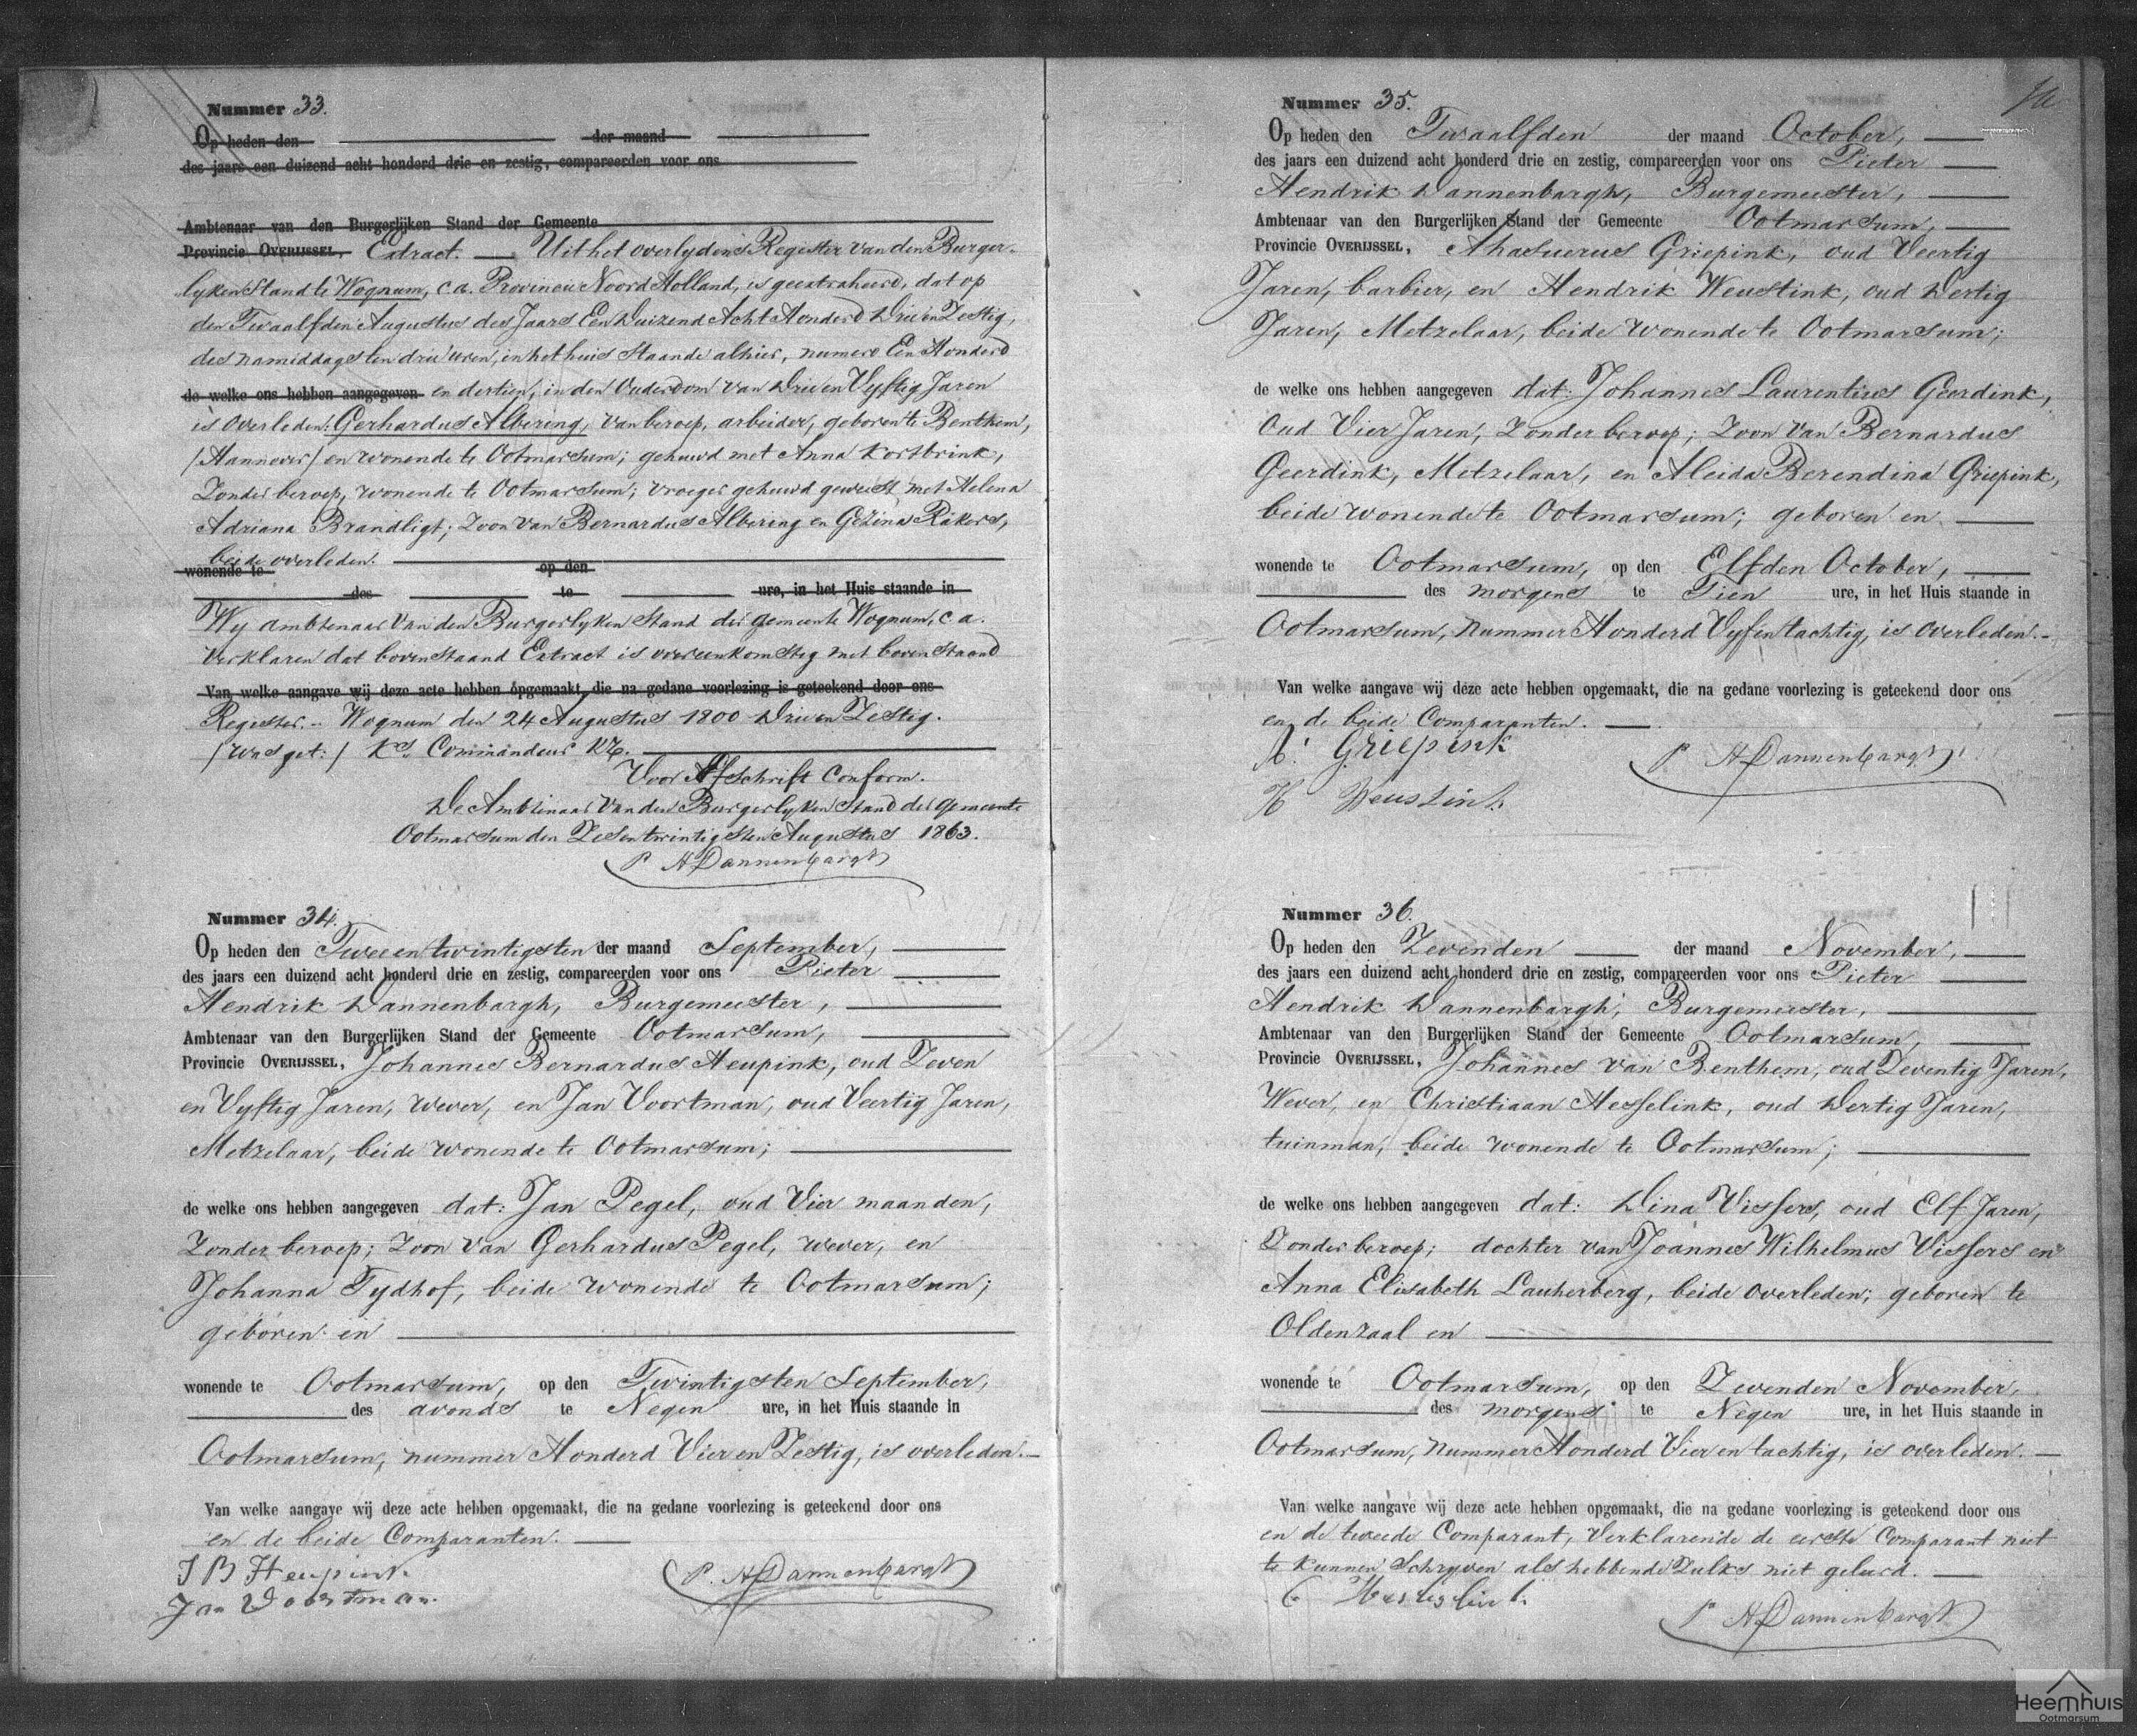 Nummer 33.
Op heden den der maand
des jaars een duizend acht honderd drie en zestig, compareerden voor ons
Ambtenaar van den Burgerlijken Stand der Gemeente
Provincie OVERIJSSEL, Extract. Uit het overlydens Register van den Burger-
lyken Stand te Wognum, c.a. Provincie Noord Holland, is geextraheerd, dat op
den Twaalfden Augustus des Jaars Een Duizend Acht Honderd Drie en Zestig,
des namiddags ten drie uren, in het huis staande alhier, numero Een Honderd
de welke ons hebben aangegeven en dertien, in den Ouderdom van Drie en Vyftig Jaren
is Overleden: Gerhardus Albering, van beroep, arbeider, geboren te Benthem,
/Hannover/ en wonende te Ootmarsum; gehuwd met Anna Korsbrink,
Zonder beroep, wonende te Ootmarsum; vroeger gehuwd geweest met Helena
Adriana Brandligt; Zoon van Bernardus Albering en Gezina Rakers,
beide overleden.
wonende te op den
des te ure, in het Huis staande in
Wy ambtenaar van den Burgerlyken Stand der gemeente Wognum, c.a.
Verklaren dat bovenstaand Extract is overeenkomstig met bovenstaand
Van welke aangave wij deze acte hebben opgemaakt, die na gedane voorlezing is geteekend door ons
Register. - Wognum den 24 Augustus 1800 Drie en Zestig.
/was get:/ Ks. Commandeur Kz.
Voor Afschrift Conform.
De Ambtenaar van den Burgerlyken Stand der Gemeente
Ootmarsum den Zesentwintigsten Augustus 1863.
P H Dannenbargh
Nummer 34.
Op heden den Tweeentwintigsten der maand September,
des jaars een duizend acht honderd drie en zestig, compareerden voor ons Pieter
Hendrik Dannenbargh, Burgemeester,
Ambtenaar van den Burgerlijken Stand der Gemeente Ootmarsum,
Provincie OVERIJSSEL, Johannes Bernardus Heupink, oud Zeven
en Vyftig Jaren, wever, en Jan Voortman, oud Veertig Jaren,
Metzelaar, beide wonende te Ootmarsum;
de welke ons hebben aangegeven dat: Jan Pegel, oud Vier maanden,
Zonder beroep; Zoon van Gerhardus Pegel, wever, en
Johanna Tydhof, beide wonende te Ootmarsum;
geboren en
wonende te Ootmarsum, op den Twintigsten September,
des avonds te Negen ure, in het Huis staande in
Ootmarsum, nummer Honderd Vier en Zestig, is overleden. -
Van welke aangave wij deze acte hebben opgemaakt, die na gedane voorlezing is geteekend door ons
en de beide Comparanten.
J B Heupink
Jan Voortman
P. H Dannenbargh
Nummer 35.
Op heden den Twaalfden der maand October,
des jaars een duizend acht honderd drie en zestig, compareerden voor ons Pieter
Hendrik Dannenbargh, Burgemeester,
Ambtenaar van den Burgerlijken Stand der Gemeente Ootmarsum,
Provincie OVERIJSSEL, Ahasuerus Griepink, oud Veertig
Jaren, barbier, en Hendrik Weustink, oud Dertig
Jaren, Metzelaar, beide wonende te Ootmarsum;
de welke ons hebben aangegeven dat: Johannes Laurentius Geerdink,
Oud Vier Jaren, Zonder beroep; Zoon van Bernardus
Geerdink, Metzelaar, en Aleida Berendina Griepink,
beide wonende te Ootmarsum; geboren en
wonende te Ootmarsum, op den Elfden October,
des morgens te Tien ure, in het Huis staande in
Ootmarsum, Nummer Honderd Vyfentachtig, is overleden. -
Van welke aangave wij deze acte hebben opgemaakt, die na gedane voorlezing is geteekend door ons
en de beide Comparanten.
A. Griepink
P H Dannenbargh
H Weustink
Nummer 36.
Op heden den Zevenden der maand November,
des jaars een duizend acht honderd drie en zestig, compareerden voor ons Pieter
Hendrik Dannenbargh, Burgemeester,
Ambtenaar van den Burgerlijken Stand der Gemeente Ootmarsum,
Provincie OVERIJSSEL, Johannes van Benthem, oud Zeventig Jaren,
Wever, en Christiaan Hesselink, oud Dertig Jaren,
tuinman, beide wonende te Ootmarsum;
de welke ons hebben aangegeven dat: Dina Vissers, oud Elf Jaren,
Zonder beroep; dochter van Joannes Wilhelmus Vissers en
Anna Elisabeth Lauherberg, beide overleden; geboren te
Oldenzaal en
wonende te Ootmarsum, op den Zevenden November,
des morgens te Negen ure, in het Huis staande in
Ootmarsum, Nummer Honderd Vier en tachtig, is overleden.
Van welke aangave wij deze acte hebben opgemaakt, die na gedane voorlezing is geteekend door ons
en de tweede Comparant, verklarende de eerste Comparant niet
te kunnen Schryven als hebbende Zulks niet geleerd.
C. Hesselink
P H Dannenbargh
Heemhuis
Ootmarsum